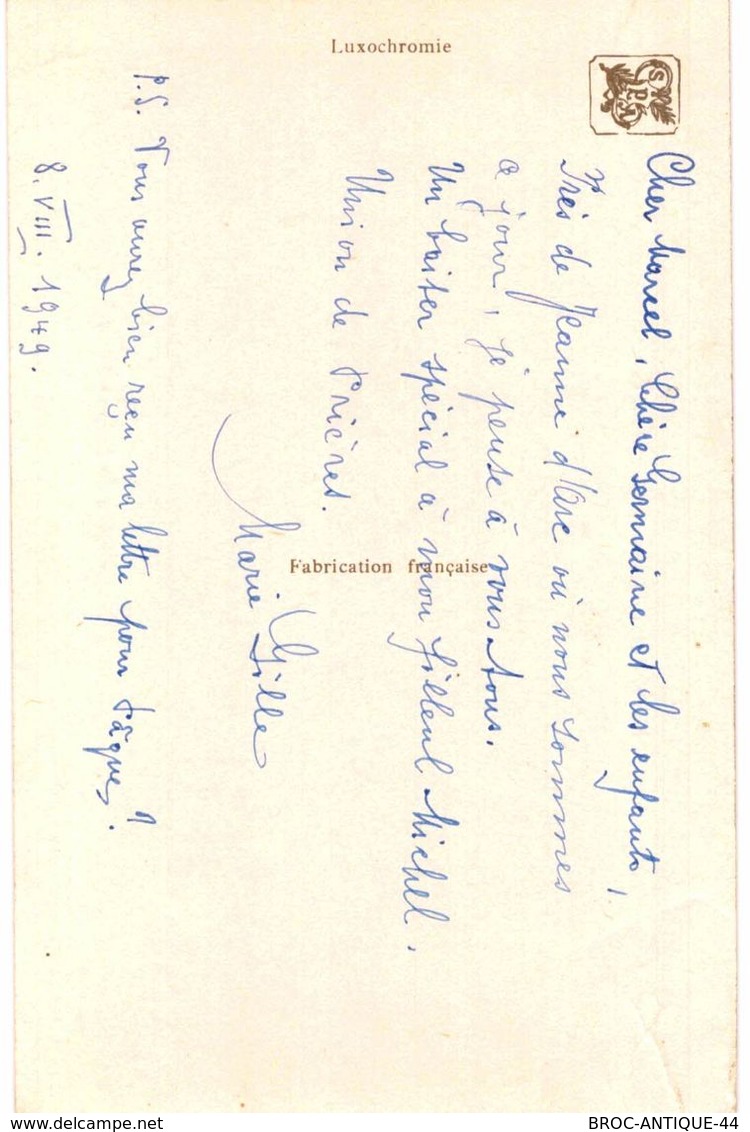 Luxochromie
SPA
Cher Marcel, Chère Germaine et les enfants,
Près de Jeanne d'Arc où nous sommes
ce jour, je pense à vous tous.
Un baiser spécial à mon filleul Michel.
Union de Prières.
Marie Gille
P.S. Vous aurez bien reçu ma lettre pour Pâques?
8.VIII.1949.
Fabrication française
www.delcampe.net
BROC-ANTIQUE-44